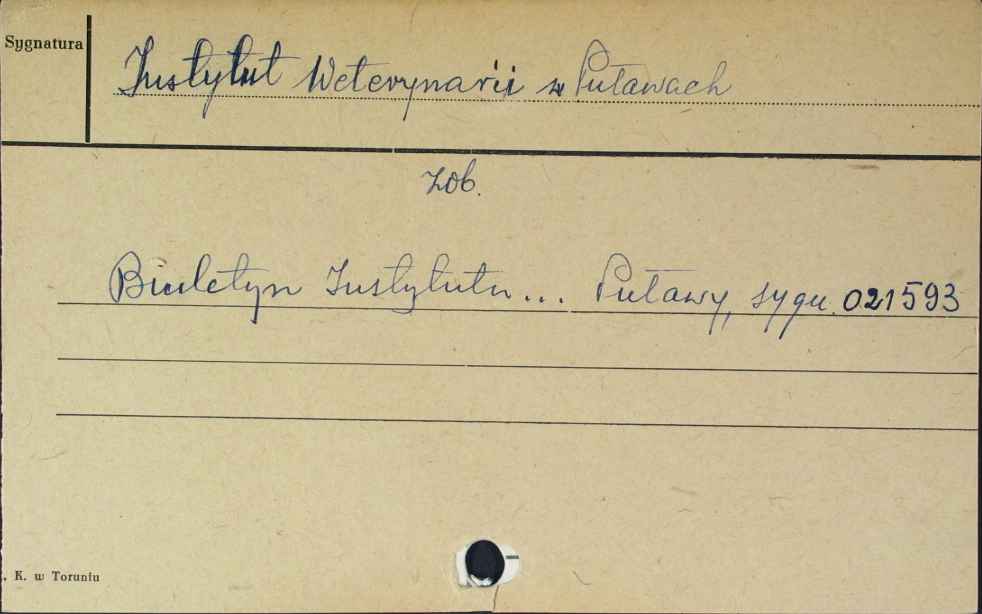 Sygnatura
Instytut Weterynarii w Puławach
zob.
Biuletyn Instytutu... Puławy, sygn. 021593
. K. w Toruniu